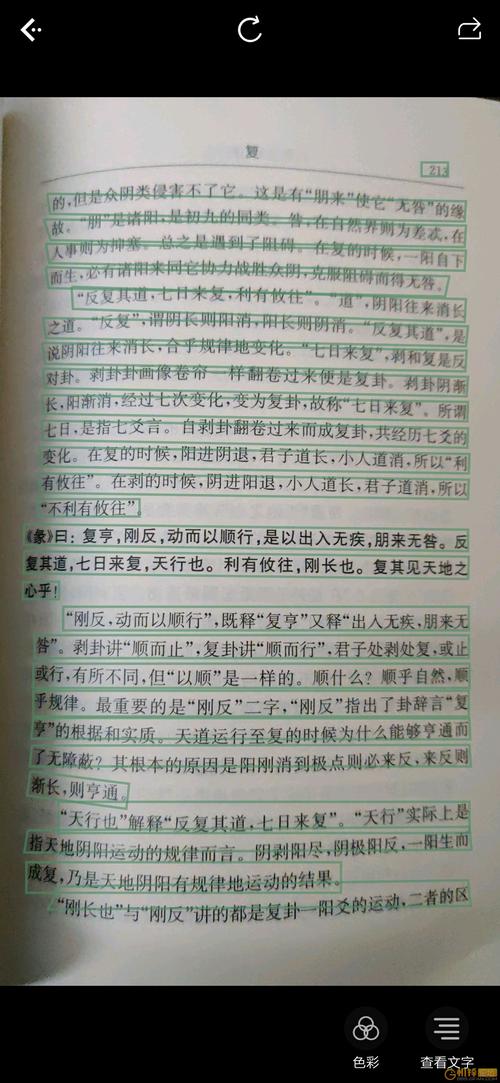 复
213
的，但是众阴类侵害不了它。这是有“朋来”使它“无咎”的缘
故。“朋”是诸阳，是初九的同类。咎，在自然界则为差忒，在
人事则为抑塞。总之是遇到了阻碍。在复的时候，一阳自下
而生，必有诸阳来同它协力战胜众阴，克服阻碍而得无咎。
“反复其道，七日来复，利有攸往”。“道”，阴阳往来消长
之道。“反复”，谓阴长则阳消，阳长则阴消。“反复其道”，是
说阴阳往来消长，合乎规律地变化。“七日来复”，剥和复是反
对卦。剥卦卦画像卷帘一样翻卷过来便是复卦。剥卦阴渐
长，阳渐消，经过七次变化，变为复卦，故称“七日来复”。所谓
七日，是指七爻言。自剥卦翻卷过来而成复卦，共经历七爻的
变化。在复的时候，阳进阴退，君子道长，小人道消，所以“利
有攸往”。在剥的时候，阴进阳退，小人道长，君子道消，所以
“不利有攸往”。
《彖》曰：复亨，刚反，动而以顺行，是以出入无疾，朋来无咎。反
复其道，七日来复，天行也。利有攸往，刚长也。复其见天地之
心乎！
“刚反，动而以顺行”，既释“复亨”又释“出入无疾，朋来无
咎”。剥卦讲“顺而止”，复卦讲“顺而行”，君子处剥处复，或止
或行，有所不同，但“以顺”是一样的。顺什么？顺乎自然，顺
乎规律。最重要的是“刚反”二字，“刚反”指出了卦辞言“复
亨”的根据和实质。天道运行至复的时候为什么能够亨通而
了无障蔽？其根本的原因是阳刚消到极点则必来反，来反则
渐长，则亨通。
“天行也”解释“反复其道，七日来复”。“天行”实际上是
指天地阴阳运动的规律而言。阴剥阳尽，阴极阳反，一阳生而
成复，乃是天地阴阳有规律地运动的结果。
“刚长也”与“刚反”讲的都是复卦一阳爻的运动，二者的区
色彩
查看文字